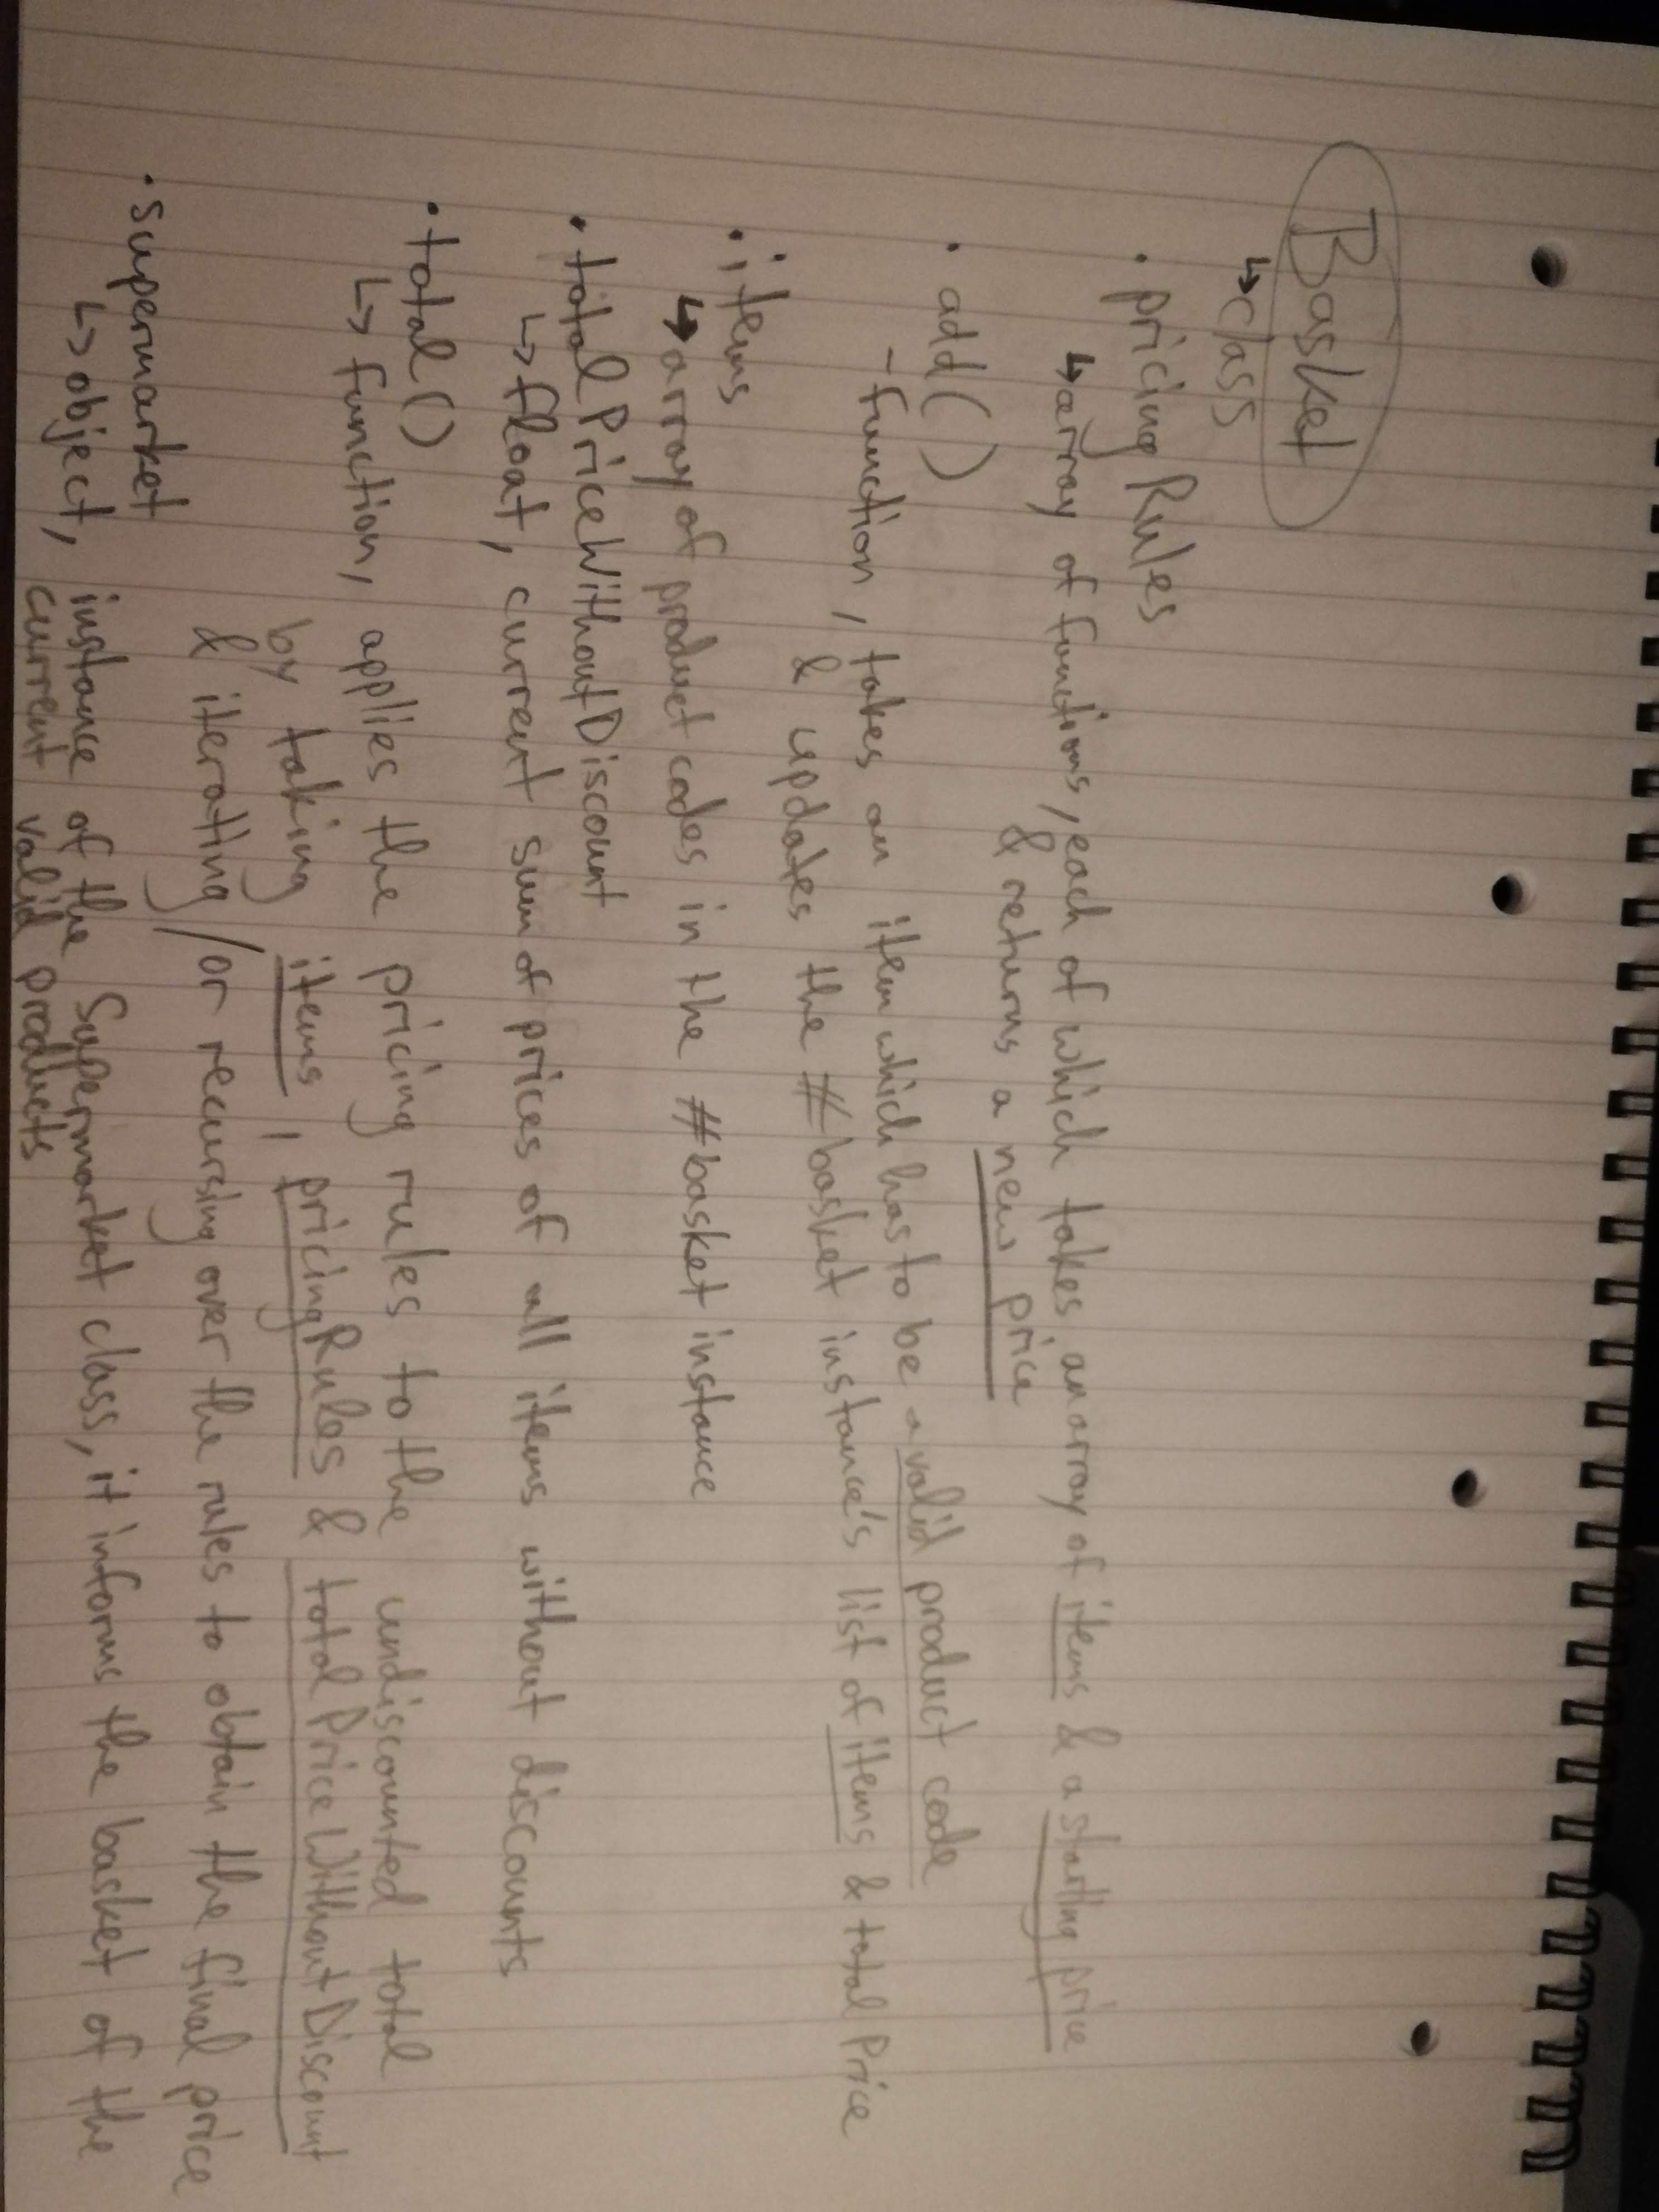 Basket
↳ class
• pricingRules
↳ array of functions, each of which takes an array of items & a starting price
& returns a new price
• add()
- function, takes an item which has to be a valid product code
& updates the #basket instance's list of items & total Price
• items
↳ array of product codes in the #basket instance
• totalPriceWithoutDiscount
↳ float, current sum of prices of all items without discounts
• total()
↳ function, applies the pricing rules to the undiscounted total
by taking items, pricingRules & totalPriceWithoutDiscount
& iterating/or recursing over the rules to obtain the final price
• supermarket
↳ object, instance of the Supermarket class, it informs the basket of the
current valid products